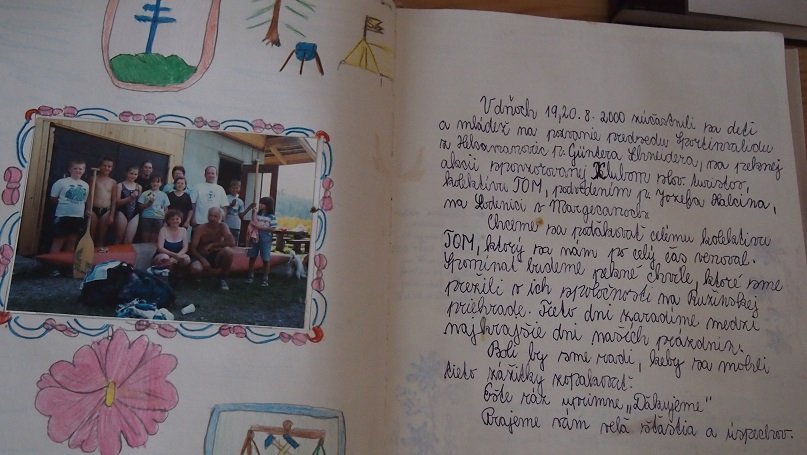 V dňoch 19,20.8.2000 zúčastnili sa deti
a mládež na pozvanie predsedu Sportinvalidu
z Helcmanoviec p. Güntera Schneidera, na peknej
akcii sponzorovanej Klubom slov. turistov,
kolektívu TOM, pod vedením p. Jozefa
na Lodenici v Margecanoch.
Chceme sa poďakovať celému kolektívu
TOM, ktorý sa nám po celý čas venoval.
Spomínať budeme pekné chvíle, ktoré sme
prežili v ich spoločnosti na Ružínskej
priehrade. Tieto dni zaradíme medzi
najkrajšie dni našich prázdnin.
Boli by sme radi, keby sa mohli
tieto zážitky zopakovať.
Ešte raz úprimne „Ďakujeme"
Prajeme vám veľa šťastia a úspechov.